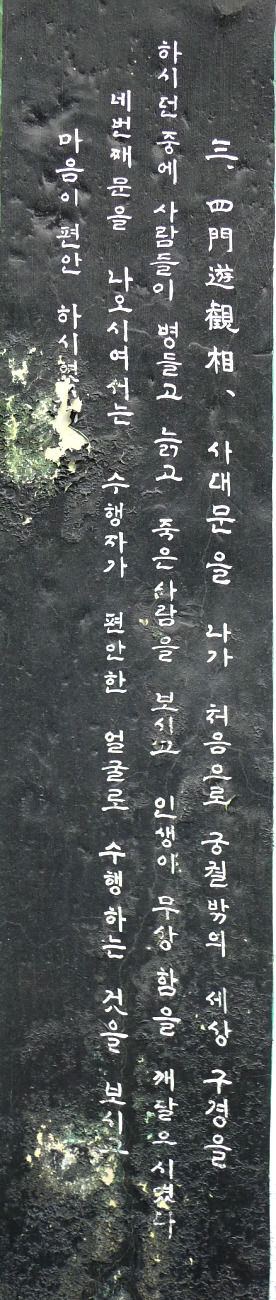 三、四門遊觀相、 사대문을 나가 처음으로 궁궐밖의 세상 구경을
하시던 중에 사람들이 병들고 늙고 죽은 사람을 보시고 인생이 무상함을 깨달으시였다
네번째 문을 나오시여서는 수행자가 편안한 얼굴로 수행하는 것을 보시고
마음이 편안 하시였